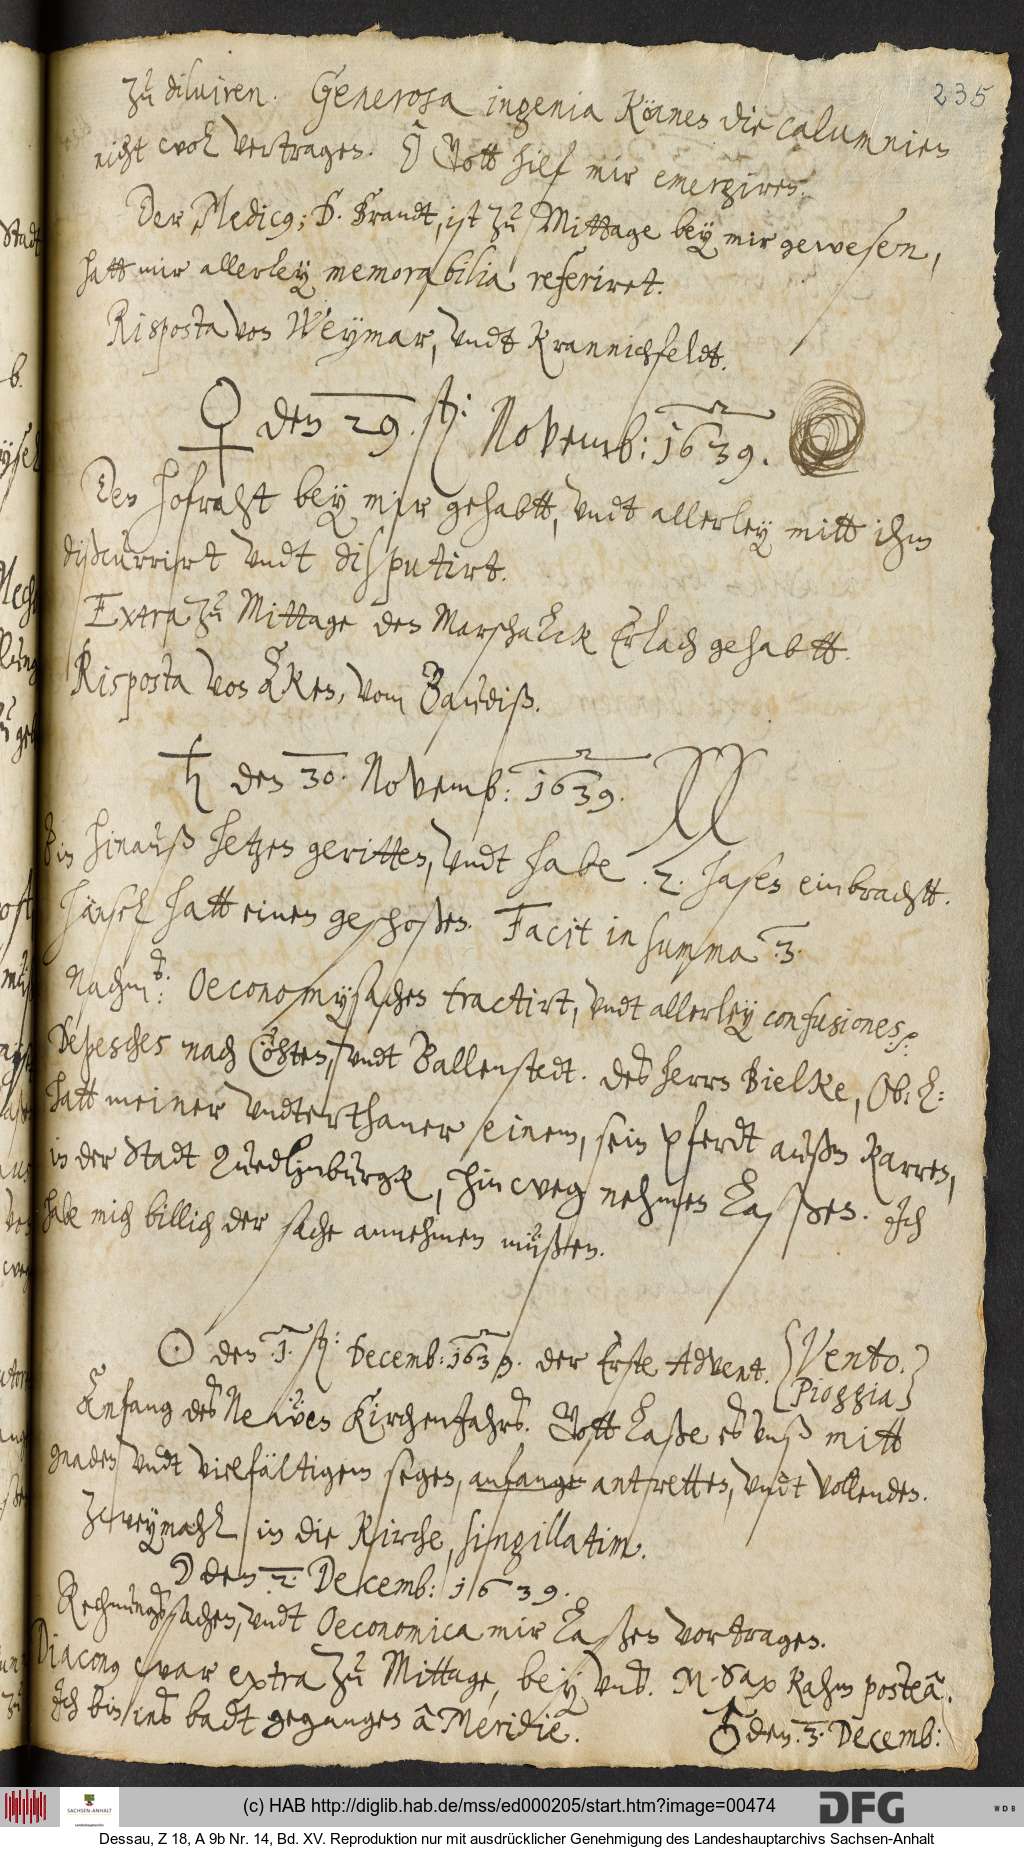 235
zu diluiren. Generosa ingenia können die calumnien
nicht wol vertragen. O Gott hilf mir emergiren.
Der Medicus; D. Brandt, ist zu Mittage bey mir gewesen,
hatt mir allerley memorabilia referiret.
Risposta von Weymar, vndt Krannichfeldt.
♀ den 29. Novemb: 1639.
Den hofraht bey mir gehabtt, vndt allerley mitt ihm
discurrirt vndt disputirt.
Extra zu Mittage den Marschalck Erlach gehabtt.
Risposta von vom Baudiß.
♄ den 30. Novemb: 1639.
Bin hinauß hetzen geritten, vndt habe .2. hasen einbrachtt.
hatt einen geschoßen. Facit in summa .3.
Nachm: Oeconomysachen tractirt, vndt allerley confusiones
Depeschen nach Cöhten, vndt Ballenstedt. des herrn Bielke, Ob: L:
hatt meiner vndterthaner einem, sein pferdt außm Karren,
in der Stadt Quedlinburgk, hinweg nehmen laßen. Ich
habe mich billich der sache annehmen müßen.
☉ den .1. Decemb: 1639. der Erste Advent. {Vento.
Pioggia}
Anfang des Neẅen KirchenJahrs. Gott laße es vnß mitt
gnaden vndt vielfältigem segen, anfangen antretten, vndt vollenden.
Zweymahl in die Kirche, singillatim.
☽ den .2. Decemb: 1639.
Rechnungssachen, vndt Oeconomica mir laßen vortragen.
Diaconus war extra zu Mittage, bey vns. M. Sax kahm posteà.
Ich bin ins badt gegangen à Meridie.
♂ den .3. Decemb:
(c) HAB http://diglib.hab.de/mss/ed000205/start.htm?image=00474
SACHSEN-ANHALT
DFG
WDB
Dessau, Z 18, A 9b Nr. 14, Bd. XV. Reproduktion nur mit ausdrücklicher Genehmigung des Landeshauptarchivs Sachsen-Anhalt